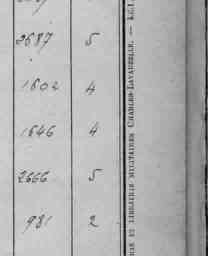 2687 5
1602 4
1646 4
2666 5
981 2
ET LIBRAIRIE MILITAIRES CHARLES-LAVAUZELLE. —